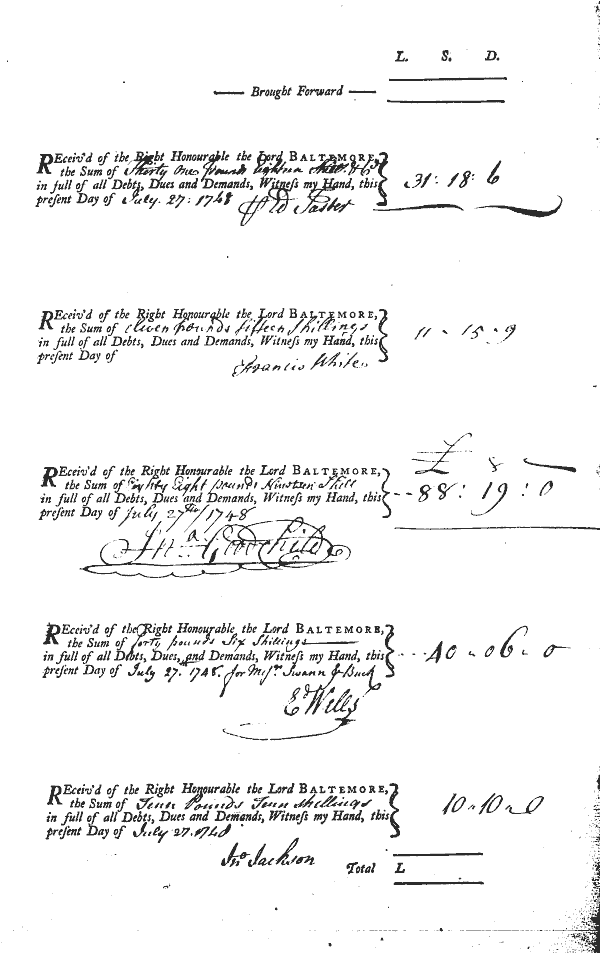 L. S. D.
Brought Forward
REceiv'd of the Right Honourable the Lord BALTEMORE,
the Sum of thirty One pounds Eighteen Shill: & 6
in full of all Debts, Dues and Demands, Witneſs my Hand, this
preſent Day of July. 27: 1748
31: 18: 6
REceiv'd of the Right Honourable the Lord BALTEMORE,
the Sum of eleven pounds fifteen Shillings
in full of all Debts, Dues and Demands, Witneſs my Hand, this
preſent Day of
11 - 15 - 9
Francis White
REceiv'd of the Right Honourable the Lord BALTEMORE,
the Sum of Eighty Eight pounds Nineteen Shill
in full of all Debts, Dues and Demands, Witneſs my Hand, this
preſent Day of July 27th 1748
£ s
88: 19: 0
Jna Goodchild
REceiv'd of the Right Honourable the Lord BALTEMORE,
the Sum of forty pounds Six Shillings
in full of all Debts, Dues, and Demands, Witneſs my Hand, this
preſent Day of July 27. 1748. for Meſsrs Swann & Buck
40 - 06 - 0
Ed Wells
REceiv'd of the Right Honourable the Lord BALTEMORE,
the Sum of Tenn Pounds Tenn shillings
in full of all Debts, Dues and Demands, Witneſs my Hand, this
preſent Day of July 27. 1748
10 - 10 - 0
Jno Jackson
Total L